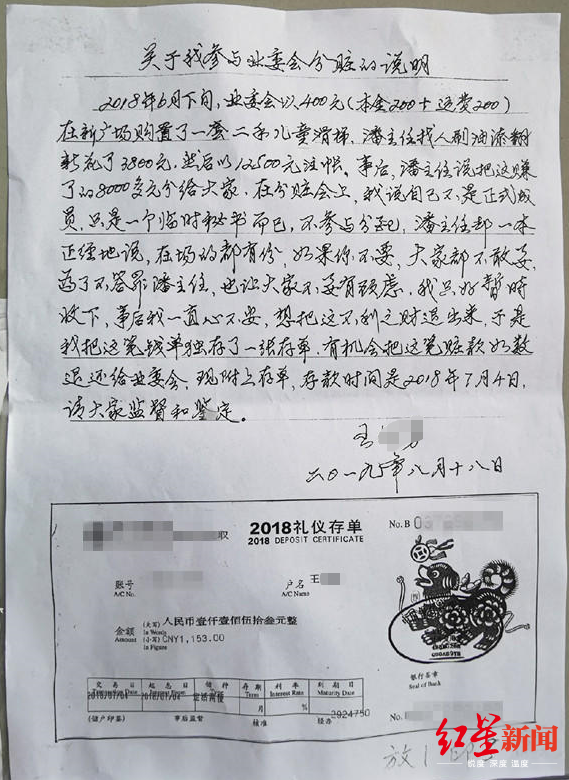 关于我参与业委会分赃的说明
2018年6月下旬,业委会以400元(本金200+运费200)
在新广场购置了一套二手儿童滑梯,潘主任找人刷油漆翻
新花了3800元,然后以12500元注帐。事后,潘主任说把这赚
了的8000多元分给大家,在分赃会上,我说自己不是正式成
员,只是一个临时秘书而已,不参与分配,潘主任却一本
正经地说,在场的都有份,如果你不要,大家都不敢要,
为了不答罪潘主任,也让大家不要有顾虑,我只好暂时
收下,事后我一直心不安,想把这不利之财退出来,于是
我把这笔钱单独存了一张存单,有机会把这笔赃款如数
退还给业委会,现附上存单,存款时间是2018年7月4日,
请大家监督和鉴定。
王
二0一九年八月十八日
2018礼仪存单
2018 DEPOSIT CERTIFICATE
No.B 03
账号
A/C No.
户名 王
A/C Name
金额 (大写) 人民币壹仟壹佰伍拾叁元整
Amount In Words
(小写) CNY1,153.00
In Figure
银行签章
Seal of Bank
交易日 起息日 储种 存期 利率 到期日
Term Interest Rate Maturity Date
2018/07/04 2018/07/04
月 %
(储户印鉴) 事后监督 核准 经办
3924750
No.B
红星新闻
锐度 深度 温度